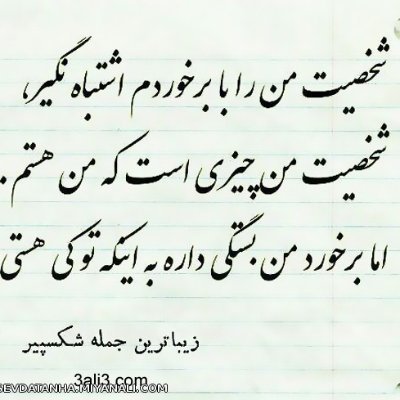 شخصیت من را با برخوردم اشتباه نگیر،
شخصیت من چیزی است که من هستم.
اما برخورد من بستگی داره به اینکه تو کی هستی
زیباترین جمله شکسپیر
3ali3.com
SEVDATANHA.MIYANALI.COM